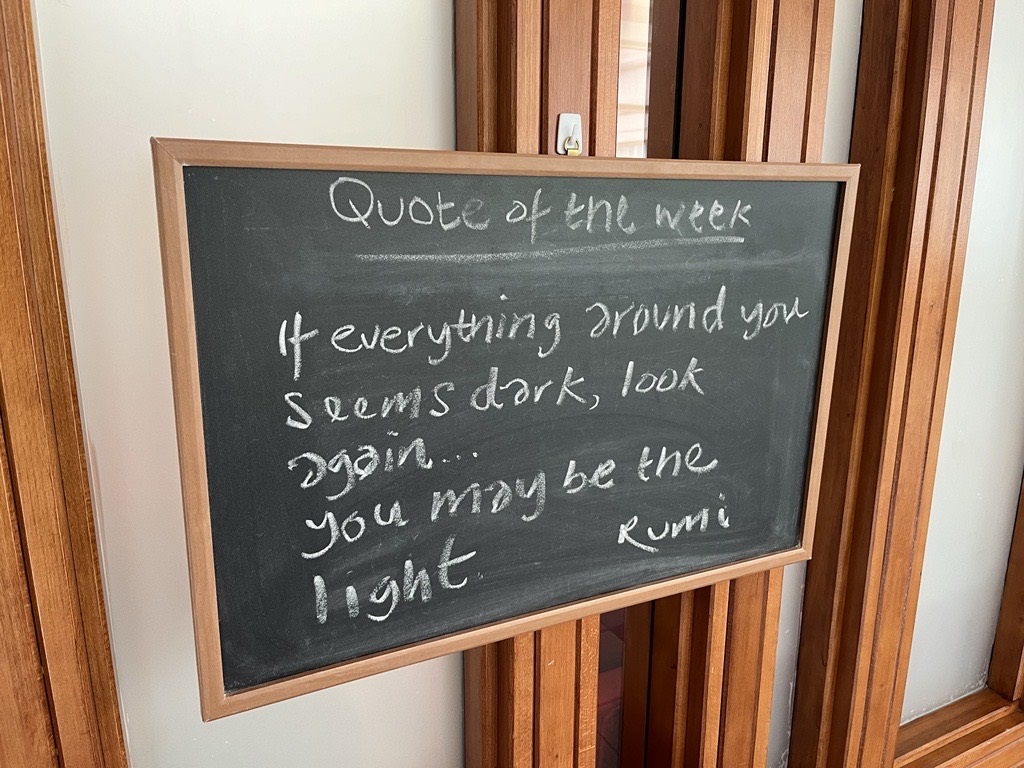 Quote of the week
If everything around you
seems dark, look
again...
you may be the
light
Rumi